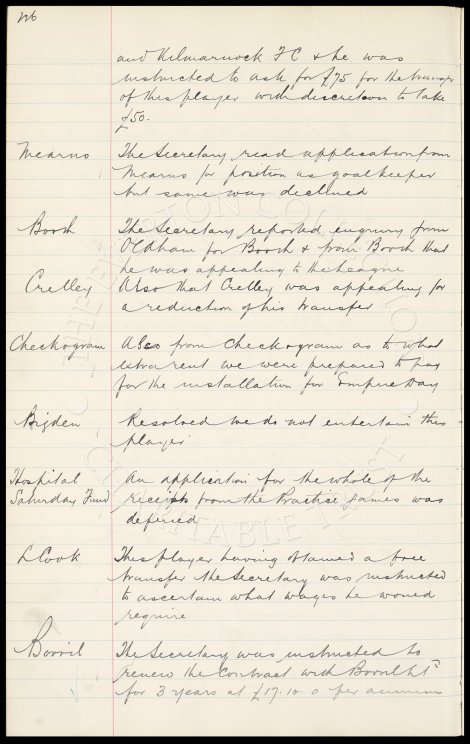 226
and Kilmarnock F C & he was
instructed to ask for £75 for the transfer
of this player with discretion to take
£50.
Mearns The Secretary read application from
Mearns for position as goalkeeper
but same was declined
Booth The Secretary reported enquiry from
Oldham for Booth & from Booth that
he was appealing to the League
Crelley Also that Crelley was appealing for
a reduction of his transfer
Checkogram Also from Checkogram as to what
extra rent we were prepared to pay
for the installation for Empire Day
Bigden Resolved we do not entertain this
player
Hospital An application for the whole of the
Saturday Fund receipts from the Practice Games was
deferred
L Cook This player having obtained a free
transfer the Secretary was instructed
to ascertain what wages he would
require
Bovril The Secretary was instructed to
renew the Contract with Bovril Ltd
for 3 years at £17.10.0 per annum